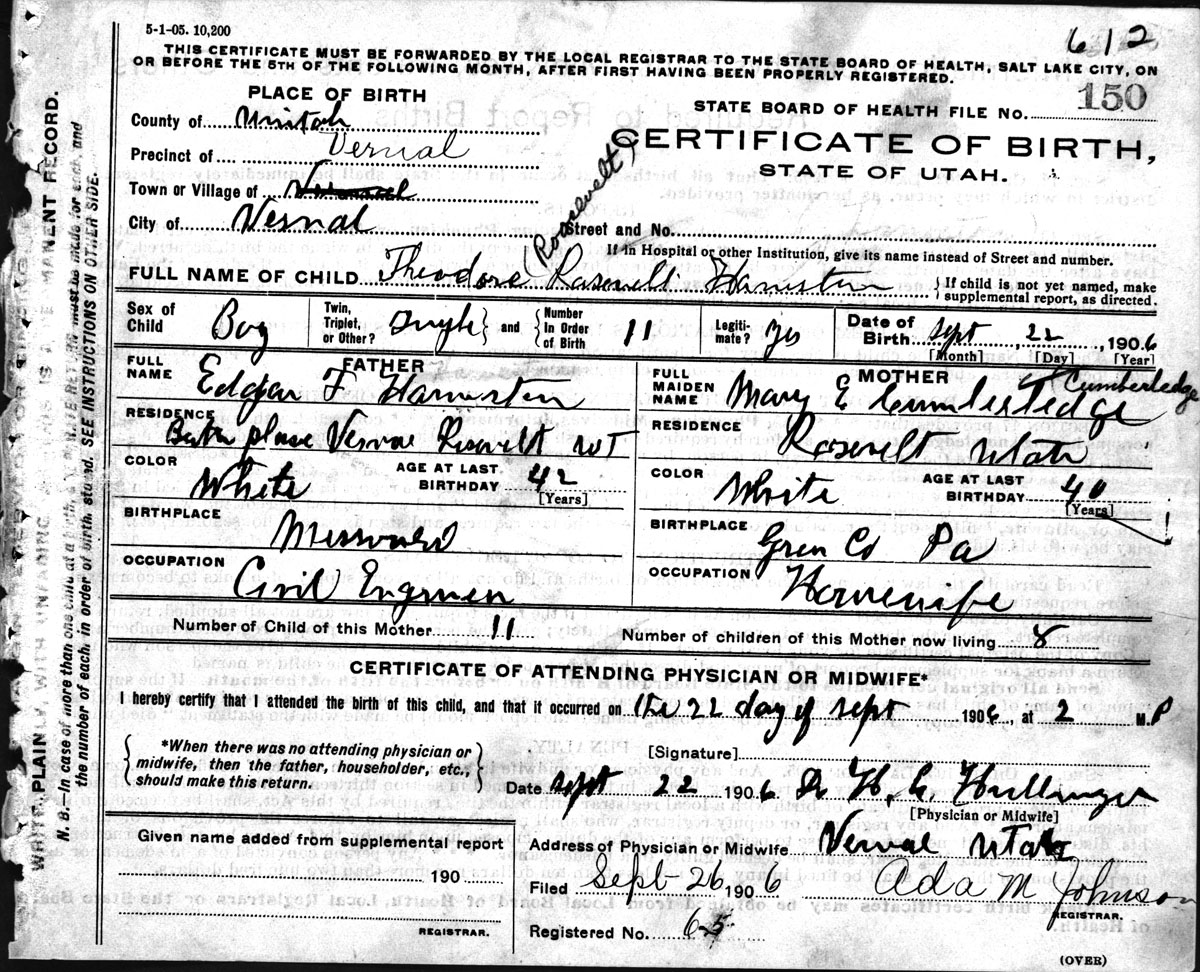 5-1-05. 10,200
612
THIS CERTIFICATE MUST BE FORWARDED BY THE LOCAL REGISTRAR TO THE STATE BOARD OF HEALTH, SALT LAKE CITY, ON
OR BEFORE THE 5TH OF THE FOLLOWING MONTH, AFTER FIRST HAVING BEEN PROPERLY REGISTERED.
PLACE OF BIRTH
STATE BOARD OF HEALTH FILE No. 150
County of Uintah
CERTIFICATE OF BIRTH,
Precinct of Vernal
STATE OF UTAH.
Town or Village of
City of Vernal
Street and No.
If in Hospital or other Institution, give its name instead of Street and number.
Roosevelt
FULL NAME OF CHILD Theodore Rosevelt Hamston
If child is not yet named, make
supplemental report, as directed.
Sex of Child Boy
Twin, Triplet, or Other? Single and Number In Order of Birth 11
Legitimate? Yes
Date of Birth Sept 22, 1906
[Month] [Day] [Year]
FATHER
FULL NAME Edgar F Hamston
RESIDENCE
Birth place Vernal Rosevelt
COLOR White
AGE AT LAST BIRTHDAY 42
[Years]
BIRTHPLACE Missouri
OCCUPATION Civil Engineer
MOTHER
FULL MAIDEN NAME Mary E Cumberledge
Cumberledge
RESIDENCE Rosevelt Utah
COLOR White
AGE AT LAST BIRTHDAY 40
[Years]
BIRTHPLACE Gren Co Pa
OCCUPATION Housewife
Number of Child of this Mother 11
Number of children of this Mother now living 8
CERTIFICATE OF ATTENDING PHYSICIAN OR MIDWIFE*
I hereby certify that I attended the birth of this child, and that it occurred on the 22 day of sept 1906, at 2 P M.
*When there was no attending physician or
midwife, then the father, householder, etc.,
should make this return.
[Signature]
Date sept 22 1906 Dr H. C. Hullinger
[Physician or Midwife]
Address of Physician or Midwife Vernal Utah
Given name added from supplemental report
190
REGISTRAR.
Filed Sept 26 1906 Ada M Johnson
REGISTRAR.
Registered No. 65
(OVER)
N. B.—In case of more than one child at a birth, a
the number of each, in order of birth, stated. SEE INSTRUCTIONS ON OTHER SIDE.